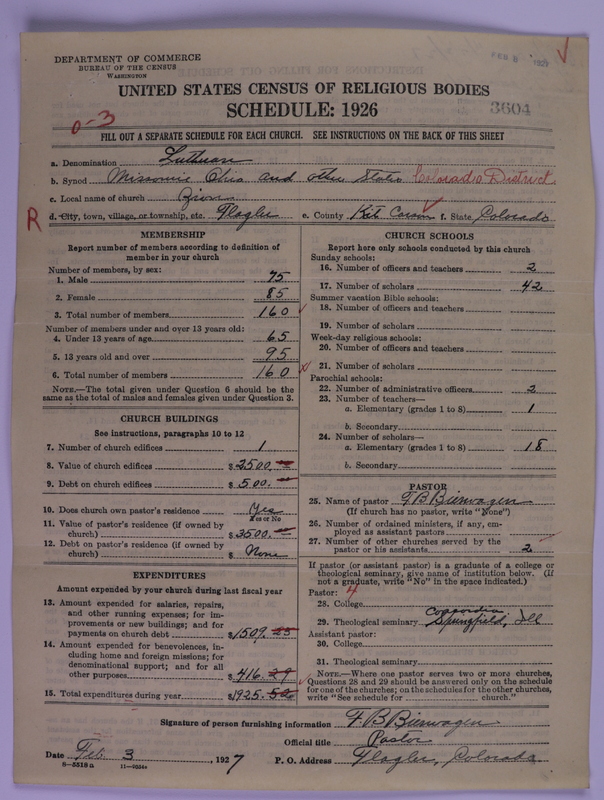 DEPARTMENT OF COMMERCE
BUREAU OF THE CENSUS
WASHINGTON
FEB 1927
UNITED STATES CENSUS OF RELIGIOUS BODIES
SCHEDULE: 1926
3604
0-3
FILL OUT A SEPARATE SCHEDULE FOR EACH CHURCH. SEE INSTRUCTIONS ON THE BACK OF THIS SHEET
a. Denomination Lutheran
b. Synod Missouri Ohio and other States Colorado District
c. Local name of church Zion
R d. City, town, village, or township, etc. Flagler e. County Kit Carson f. State Colorado
MEMBERSHIP
Report number of members according to definition of
member in your church
Number of members, by sex:
1. Male 75
2. Female 85
3. Total number of members 160
Number of members under and over 13 years old:
4. Under 13 years of age 65
5. 13 years old and over 95
6. Total number of members 160
NOTE.—The total given under Question 6 should be the
same as the total of males and females given under Question 3.
CHURCH BUILDINGS
See instructions, paragraphs 10 to 12
7. Number of church edifices 1
8. Value of church edifices $ 2500.
9. Debt on church edifices $ 500.
10. Does church own pastor's residence Yes
Yes or No
11. Value of pastor's residence (if owned by
church) $ 3500.
12. Debt on pastor's residence (if owned by
church) $ None
EXPENDITURES
Amount expended by your church during last fiscal year
13. Amount expended for salaries, repairs,
and other running expenses; for im-
provements or new buildings; and for
payments on church debt $ 1509. 23
14. Amount expended for benevolences, in-
cluding home and foreign missions; for
denominational support; and for all
other purposes $ 416. 29
15. Total expenditures during year $ 1925. 52
CHURCH SCHOOLS
Report here only schools conducted by this church
Sunday schools:
16. Number of officers and teachers 2
17. Number of scholars 42
Summer vacation Bible schools:
18. Number of officers and teachers
19. Number of scholars
Week-day religious schools:
20. Number of officers and teachers
21. Number of scholars
Parochial schools:
22. Number of administrative officers 2
23. Number of teachers—
a. Elementary (grades 1 to 8) 1
b. Secondary
24. Number of scholars—
a. Elementary (grades 1 to 8) 18
b. Secondary
PASTOR
25. Name of pastor F B Bierwagen
(If church has no pastor, write "None")
26. Number of ordained ministers, if any, em-
ployed as assistant pastors
27. Number of other churches served by the
pastor or his assistants 2
If pastor (or assistant pastor) is a graduate of a college or
theological seminary, give name of institution below. (If
not a graduate, write "No" in the space indicated.)
Pastor: 4
28. College
Concordia
29. Theological seminary Springfield, Ill
Assistant pastor:
30. College
31. Theological seminary
NOTE.—Where one pastor serves two or more churches,
Questions 28 and 29 should be answered only on the schedule
for one of the churches; on the schedules for the other churches,
write "See schedule for church."
Signature of person furnishing information F. B Bierwagen
Official title Pastor
Date Feb 3, 1927 P. O. Address Flagler, Colorado
8—5518a